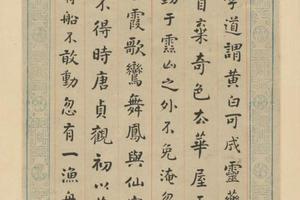 學道謂黃白可成靈藥
自棄奇色太華屋
動于靈山之外不免淹忽
霞歌鸞舞鳳與仙
不得時唐貞觀初以
船不敢動忽有一漁舟